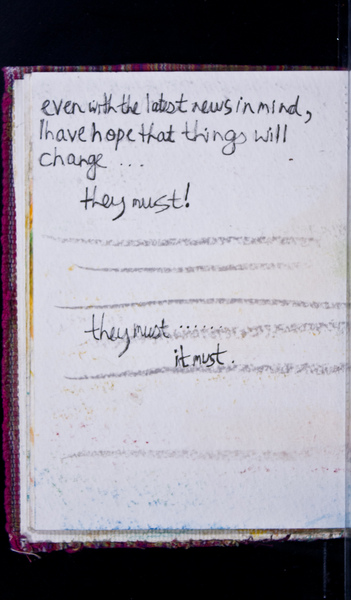 even with the latest news in mind,
I have hope that things will
change ...
they must!
they must .......
it must.